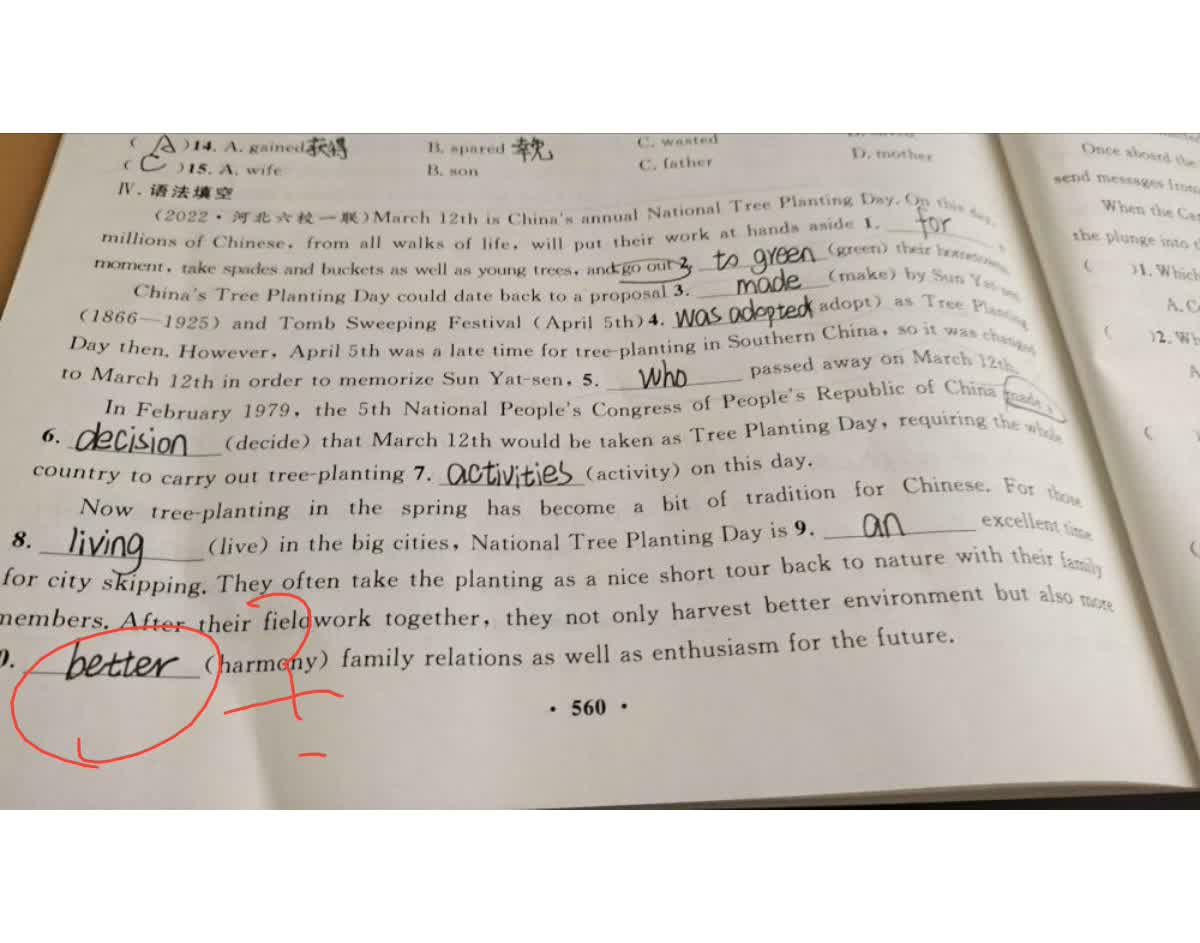 ( A )14. A. gained 获得 B. spared 幸免 C. wasted
( C )15. A. wife B. son C. father D. mother
Ⅳ. 语法填空
(2022·河北六校一联)March 12th is China's annual National Tree Planting Day. On this day,
millions of Chinese, from all walks of life, will put their work at hands aside 1. for a
moment, take spades and buckets as well as young trees, and go out 2. to green (green) their
China's Tree Planting Day could date back to a proposal 3. made (make) by Sun Yat-sen
(1866—1925) and Tomb Sweeping Festival (April 5th) 4. was adopted adopt) as Tree Planting
Day then. However, April 5th was a late time for tree-planting in Southern China, so it was changed
to March 12th in order to memorize Sun Yat-sen, 5. who passed away on March 12th.
In February 1979, the 5th National People's Congress of People's Republic of China made a
6. decision (decide) that March 12th would be taken as Tree Planting Day, requiring the whole
country to carry out tree-planting 7. activities (activity) on this day.
Now tree-planting in the spring has become a bit of tradition for Chinese. For those
8. living (live) in the big cities, National Tree Planting Day is 9. an excellent time
for city skipping. They often take the planting as a nice short tour back to nature with their family
members. After their fieldwork together, they not only harvest better environment but also more
0. better (harmony) family relations as well as enthusiasm for the future.
· 560 ·
Once aboard the
send messages from
When the
the plunge into
( )1. Which
A.
( )2. Wh
A
(